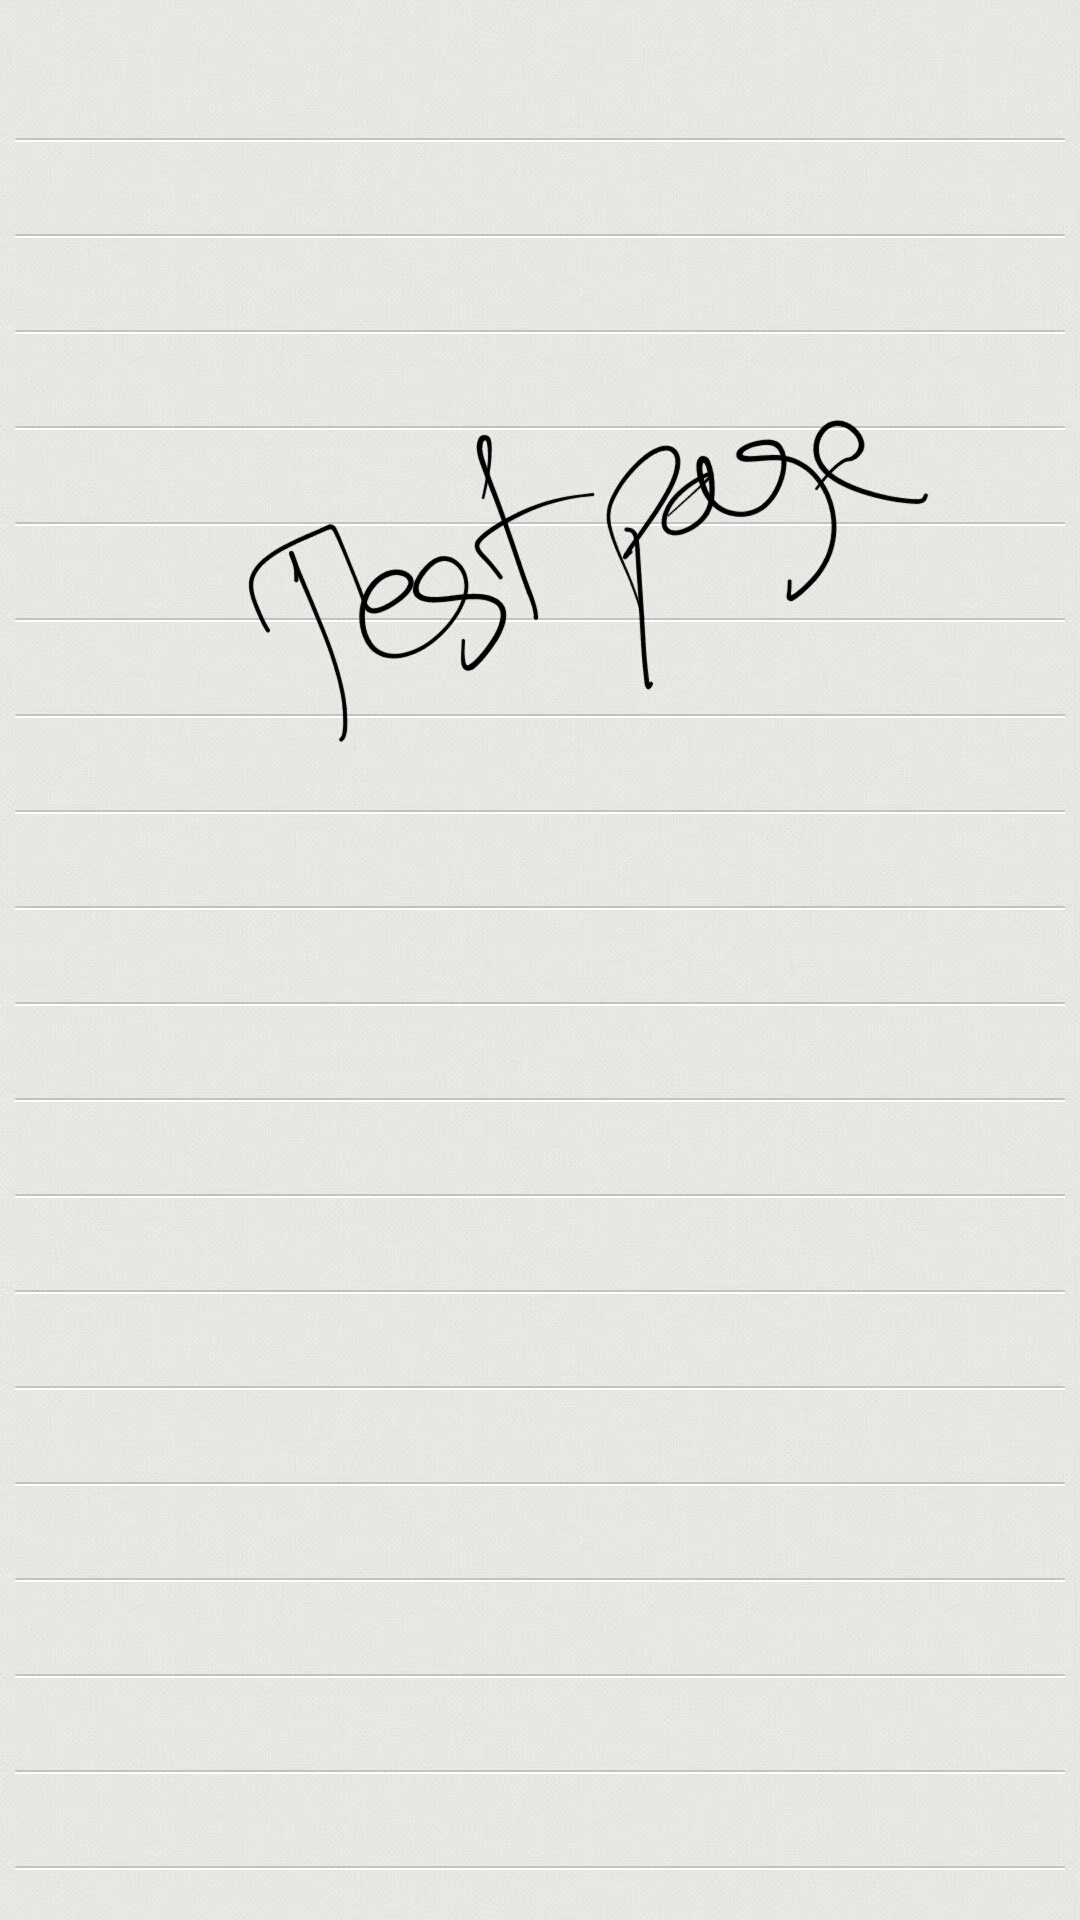 Test page